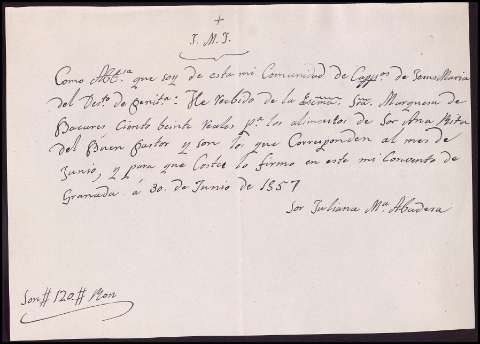 +
J. M. J.
Como Abb.ª que soy de esta mi Comunidad de Capp.ªs de Jesus Maria
del Des.to de Penit.ª: He recibido de la Exma. Sra. Marquesa de
Bacares Ciento beinte reales p.ª los alimentos de Sor Ana Rita
del Buen Pastor y son los que Corresponden al mes de
Junio, y para que Coste lo firmo en este mi Convento de
Granada a 30. de Junio de 1857
Sor Juliana M.ª Abadesa
Son # 120 # Ron